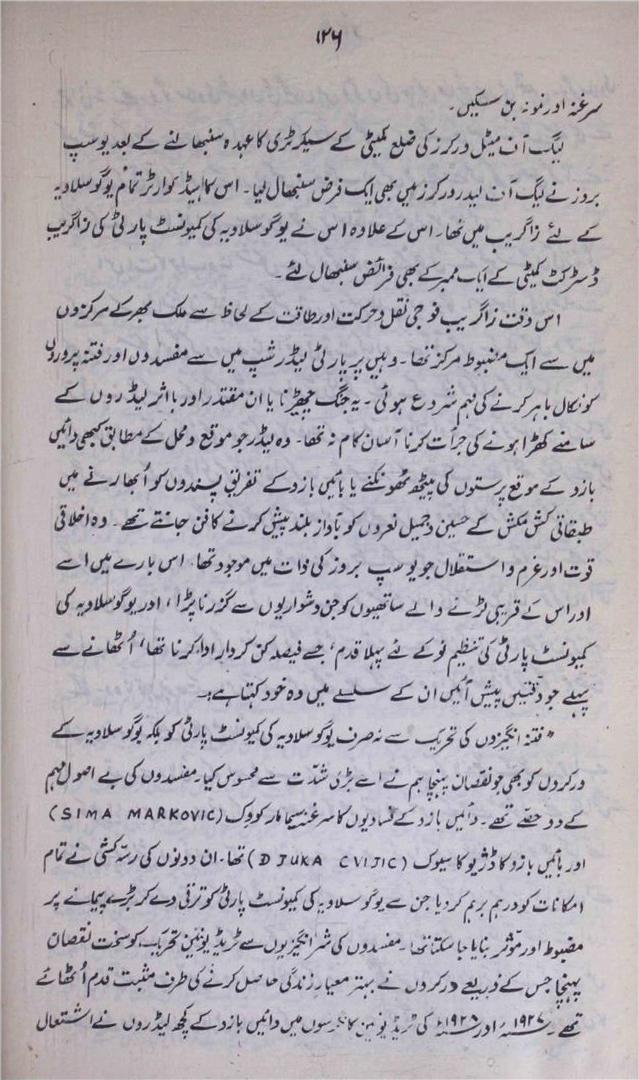 ۱۲۶
سرغنہ اور نمونہ بن سکیں۔
لیگ آف میٹل ورکرز کی ضلع کمیٹی کے سیکرٹری کا عہدہ سنبھالنے کے بعد یوسپ
بروز نے لیگ آف لیدر ورکرز میں بھی ایک فرض سنبھال لیا۔ اس کا ہیڈ کوارٹر تمام یوگوسلاویہ
کے لئے زاگریب میں تھا۔ اس کے علاوہ اس نے یوگوسلاویہ کی کمیونسٹ پارٹی کی زاگریب
ڈسٹرکٹ کمیٹی کے ایک ممبر کے بھی فرائض سنبھال لئے۔
اس وقت زاگریب فوجی نقل و حرکت اور طاقت کے لحاظ سے ملک بھر کے مرکزوں
میں سے ایک مضبوط مرکز تھا۔ وہیں پر پارٹی لیڈر شپ میں سے مفسدوں اور فتنہ پروروں
کو نکال باہر کرنے کی مہم شروع ہوئی۔ یہ جنگ چھیڑنا یا ان مقتدر اور بااثر لیڈروں کے
سامنے کھڑا ہونے کی جرأت کرنا آسان کام نہ تھا۔ وہ لیڈر جو موقع و محل کے مطابق کبھی دائیں
بازو کے موقع پرستوں کی پیٹھ ٹھونکنے یا بائیں بازو کے تفریق پسندوں کو اُبھارنے میں
طبقاتی کش مکش کے حسین و جمیل نعروں کو بآواز بلند پیش کرنے کا فن جانتے تھے۔ وہ اخلاقی
قوت اور عزم و استقلال جو یوسپ بروز کی ذات میں موجود تھا، اس بارے میں اسے
اور اس کے قریبی لڑنے والے ساتھیوں کو جن دشواریوں سے گزرنا پڑا، اور یوگوسلاویہ کی
کمیونسٹ پارٹی کی تنظیم نو کے لئے پہلا قدم، جسے فیصلہ کن کردار ادا کرنا تھا، اُٹھانے سے
پہلے جو دقتیں پیش آئیں ان کے سلسلے میں وہ خود کہتا ہے:۔
"فتنہ انگیزوں کی تحریک سے نہ صرف یوگوسلاویہ کی کمیونسٹ پارٹی کو بلکہ یوگوسلاویہ کے
ورکروں کو بھی جو نقصان پہنچا ہم نے اسے بڑی شدّت سے محسوس کیا۔ مفسدوں کی بے اصول مہم
کے دو حصّے تھے۔ دائیں بازو کے فسادیوں کا سرغنہ سیما مارکووک (SIMA MARKOVIC)
اور بائیں بازو کا ڈژیوکا سیوک (DJUKA CVIJIC) تھا۔ ان دونوں کی رسّہ کشی نے تمام
امکانات کو درہم برہم کر دیا جن سے یوگوسلاویہ کی کمیونسٹ پارٹی کو ترقی دے کر بڑے پیمانے پر
مضبوط اور مؤثر بنایا جا سکتا تھا۔ مفسدوں کی شر انگیزیوں سے ٹریڈ یونین تحریک کو سخت نقصان
پہنچا جس کے ذریعے ورکروں نے بہتر معیار زندگی حاصل کرنے کی طرف مثبت قدم اُٹھائے
تھے۔ ۱۹۲۷ء اور ۱۹۲۸ء کی ٹریڈ یونین کانگرسوں میں دائیں بازو کے کچھ لیڈروں نے اشتعال